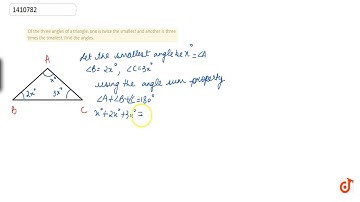 1410782
Of the three angles of a triangle, one is twice the smallest and another is three
times the smallest. Find the angles.
Let the smallest angle be x° = ∠A
∠B = 2x°, ∠C = 3x°
using the angle sum property
∠A + ∠B + ∠C = 180°
x° + 2x° + 3x° =
A
x°
2x°
3x°
B
C
doubtnut